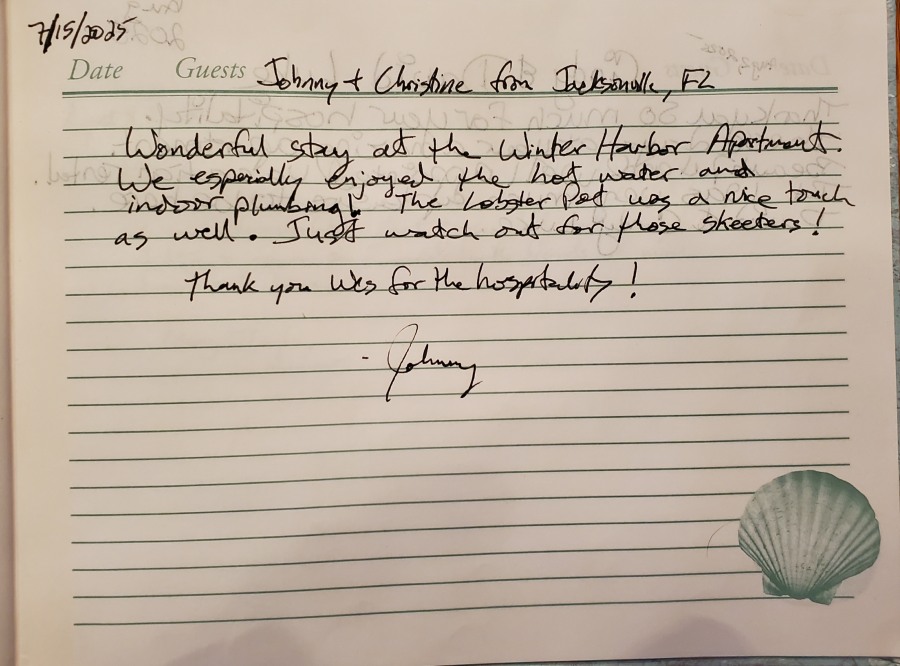 7/15/2025
Date Guests Johnny + Christine from Jacksonville, FL
Wonderful stay at the Winter Harbor Apartment.
We especially enjoyed the hot water and
indoor plumbing! The Lobster Pot was a nice touch
as well. Just watch out for those skeeters!
Thank you Wes for the hospitality!
- Johnny